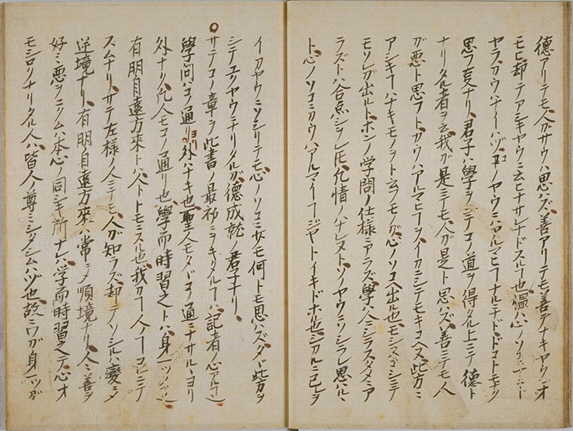 德アリテモ人ガサウハ思ハズ善アリテモ善ナキヤウニオ
モヒ却テアシキヤウニ云ヒナサルヽナドスル也慍ハ心ノソコニ
ヤスカラ
思フ皃ナリ君子ハ學ヲシテコノ道ヲ得タル上ニテ德ト
ナリタル者ヲ云我ガ是ニテモ人ガ是ト思ハズ善ニテモ人
ガ悪ト思フトカウハアルマイコトヲイカニシテモキコヘヌ此方ニ
アシキコトハナキモノヲト云フモノガ心ノソコヘ出ル也モシスコシニテモ
ソレガ出ルトホンノ学問ノ仕様ニアラズ學ハ人ニシラスタメニア
ラズトハ合点シタレ𪜈凡情ノハナレヌトソノヤウニソシラレ思ハルヽ
ト心ノソコニカウハアルマイコトジヤトイキドホル也シカルニ
イカヤウニソシリテモ心ノソコニサモ何トモ思ハズタヾ此方ヲ
シテユクヤウニナリタルガ德成就ノ君子ナリ
サテコノ章ヲ此書ノ最初ニヲキタルコト記者ノ心アルコト也
學問ハコノ通リヨリ外ハナキ也聖人モタヾコノ通ニナサルヽヨリ
外ナク凡人モコノ通リ也學而時習之トハ身一ツノコト也
有朋自遠方來トハ人トトモニスル也我カラ人ヘコトニテ
スムナリサテ左様ノ人ニテモ人ガ知ラズ却テソシルハ變ニテ
逆境ナリ有朋自遠方來ハ常ニテ順境ナリ人ノ善ヲ
好ミ悪ヲニクムハ本心ノ同キ所ナレバ學而時習之テ心オ
モシロクナリタル人ハ皆人ノ尊ミシタシムハヅ也故ニワガ身一ツガ